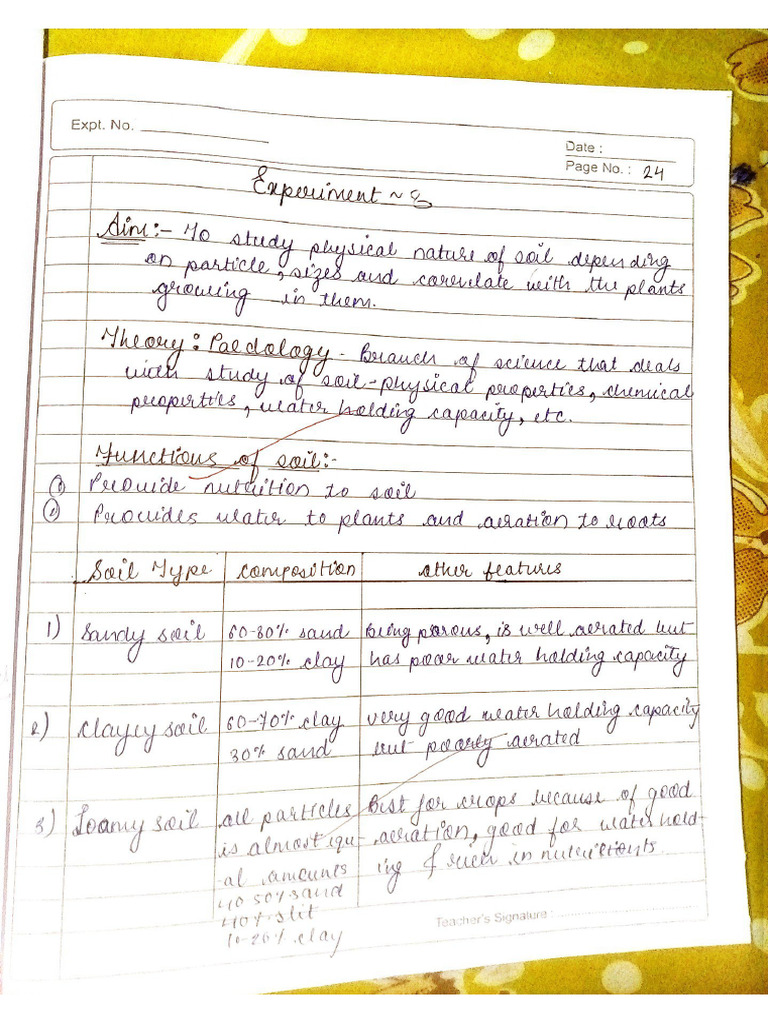 Expt. No.
Date :
Page No. : 24
Experiment ~ 8
Aim:- To study physical nature of soil depending
on particle, sizes and correlate with the plants
growing in them.
Theory: Paedology - Branch of science that deals
with study of soil-physical properties, chemical
properties, water holding capacity, etc.
Functions of soil:-
Provide nutrition to soil
Provides water to plants and aeration to roots
Soil Type composition other features
1) Sandy soil 60-80% sand being porous, is well aerated but
10-20% clay has poor water holding capacity
2) clayey soil 60-70% clay very good water holding capacity
30% sand but poorly aerated
3) Loamy soil all particles Best for crops because of good
is almost equ- aeration, good for water hold-
al amounts ing & rich in nutritients.
40 50% sand
40% slit
10-20% clay
Teacher's Signature :